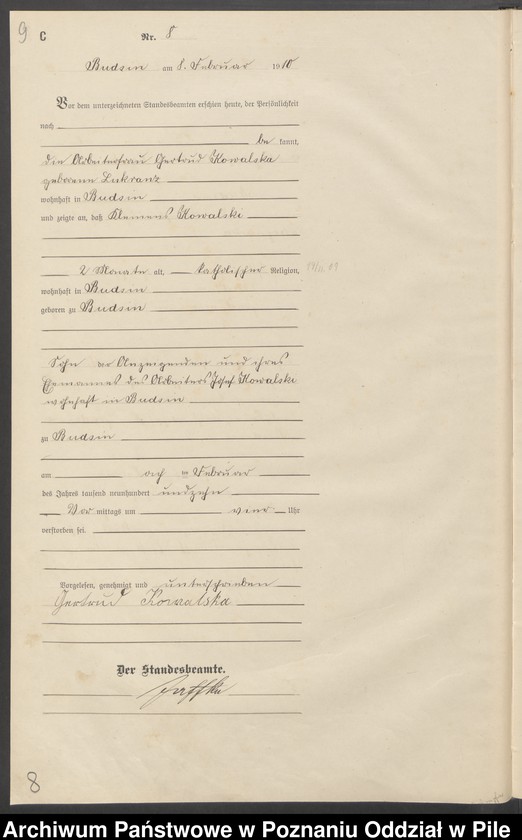 9 C Nr. 8
Budsin am 8. Februar 1910
Vor dem unterzeichneten Standesbeamten erschien heute, der Persönlichkeit
nach
be kannt,
die Arbeiterfrau Gertrud Kowalska
geborene Lukranz
wohnhaft in Budsin
und zeigte an, daß Klemens Kowalski
2 Monate alt, katholischer Religion,
wohnhaft in Budsin
geboren zu Budsin
Sohn der Anzeigenden und ihres
Ehemannes des Arbeiters Josef Kowalski
wohnhaft in Budsin
zu Budsin
am acht en Februar
des Jahres tausend neunhundert und zehn
Vor mittags um Uhr
verstorben sei.
Vorgelesen, genehmigt und unterschrieben
Gertrud Kowalska
Der Standesbeamte.
8
Archiwum Państwowe w Poznaniu Oddział w Pile